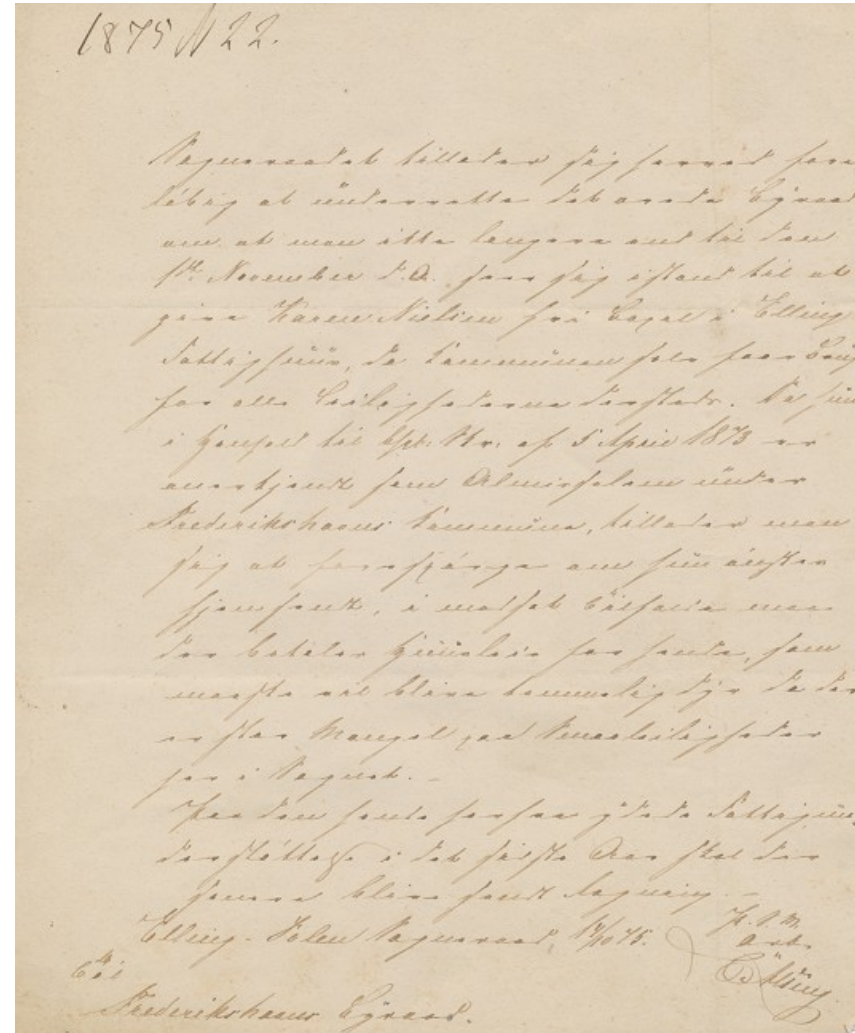 1875 N 22.
Sogneraadet tillader sig herved fore
løbig at underrette det ærede Byraad
om at man ikke længere end til den
1ste November d.A. seer sig istand til at
give Karen Nielsen fri Bopæl i Elling
Fattighuus, da Kommunen selv faaer Brug
for alle Leilighederne dersteds. Da hun
i Henhold til Skr. af 5 April 1873 er
anerkjendt som Almisselem under
Frederikshavns Kommune, tillader man
sig at forespørge om hun ønskes
hjemsendt, i modsat Tilfælde maa
der betales Huusleie for hende, som
maaske vil blive temmelig dyr da der
er stor Mangel paa Smaaleiligheder
her i Sognet. -
For den hende herfra ydede Fattigun
derstøttelse i det sidste Aar skal der
senere blive sendt Regning. -
Elling-Tolne Sogneraad, 14/10 75.
Til
Frederikshavns Byraad.